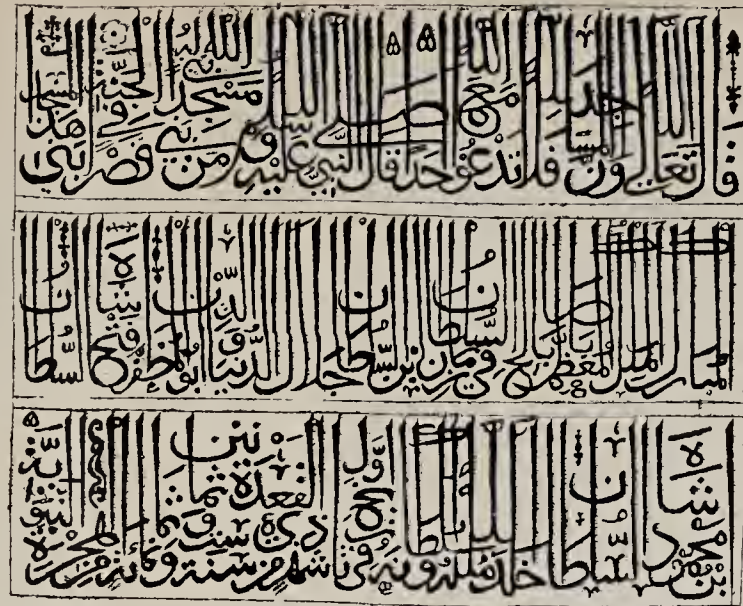 قال الله تعالى وان المساجد لله فلا تدعوا مع الله احدا قال النبي صلى الله عليه وسلم من بنى مسجدا لله بنى الله له قصرا في الجنة بنى هذا المسجد
المبارك الملك المعظم بابا صالح في زمن السلطان ابن السلطان جلال الدنيا والدين ابو المظفر فتح شاه السلطان
بن محمود شاه السلطان خلد الله ملكه وسلطانه في التاريخ اول شهر ذي القعدة سنة ست وثمانين وثمانمائة من الهجرة النبوية